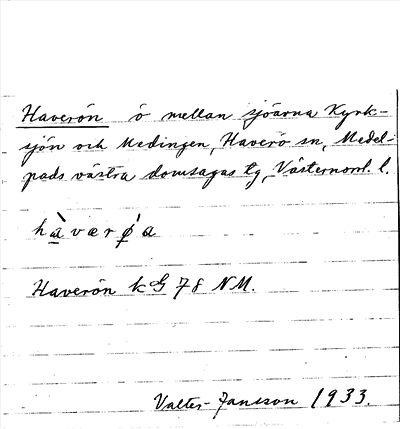 Haverön ö mellan sjöarna Kyrk-
sjön och Medingen, Haverö sn, Medel-
pads västra domsagas tg, Västernorrl. l.
hàværǿa
Haverön kG 78 NM.
Valter Jansson 1933.